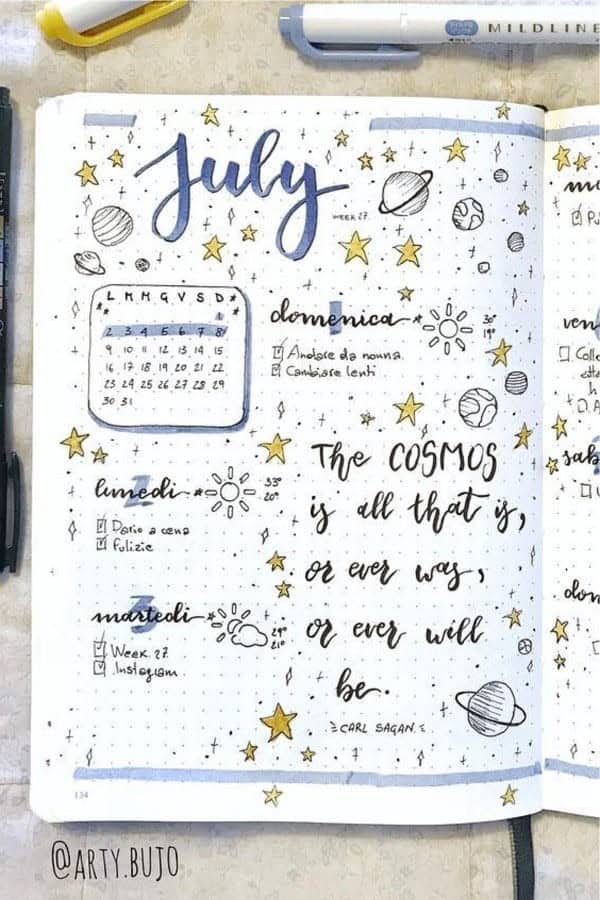 MILDLINE
July
WEEK 27
L M M G V S D
1
2 3 4 5 6 7 8
9 10 11 12 13 14 15
16 17 18 19 20 21 22
23 24 25 26 27 28 29
30 31
1
domenica
30°
19°
Andare da nonna
Cambiare lenti
2
lunedì
33°
20°
Dario a cena
Pulizie
3
martedì
29°
21°
Week 27
Instagram
The COSMOS
is all that is,
or ever was,
or ever will
be.
CARL SAGAN
134
ven
sab
dom
@ARTY.BUJO